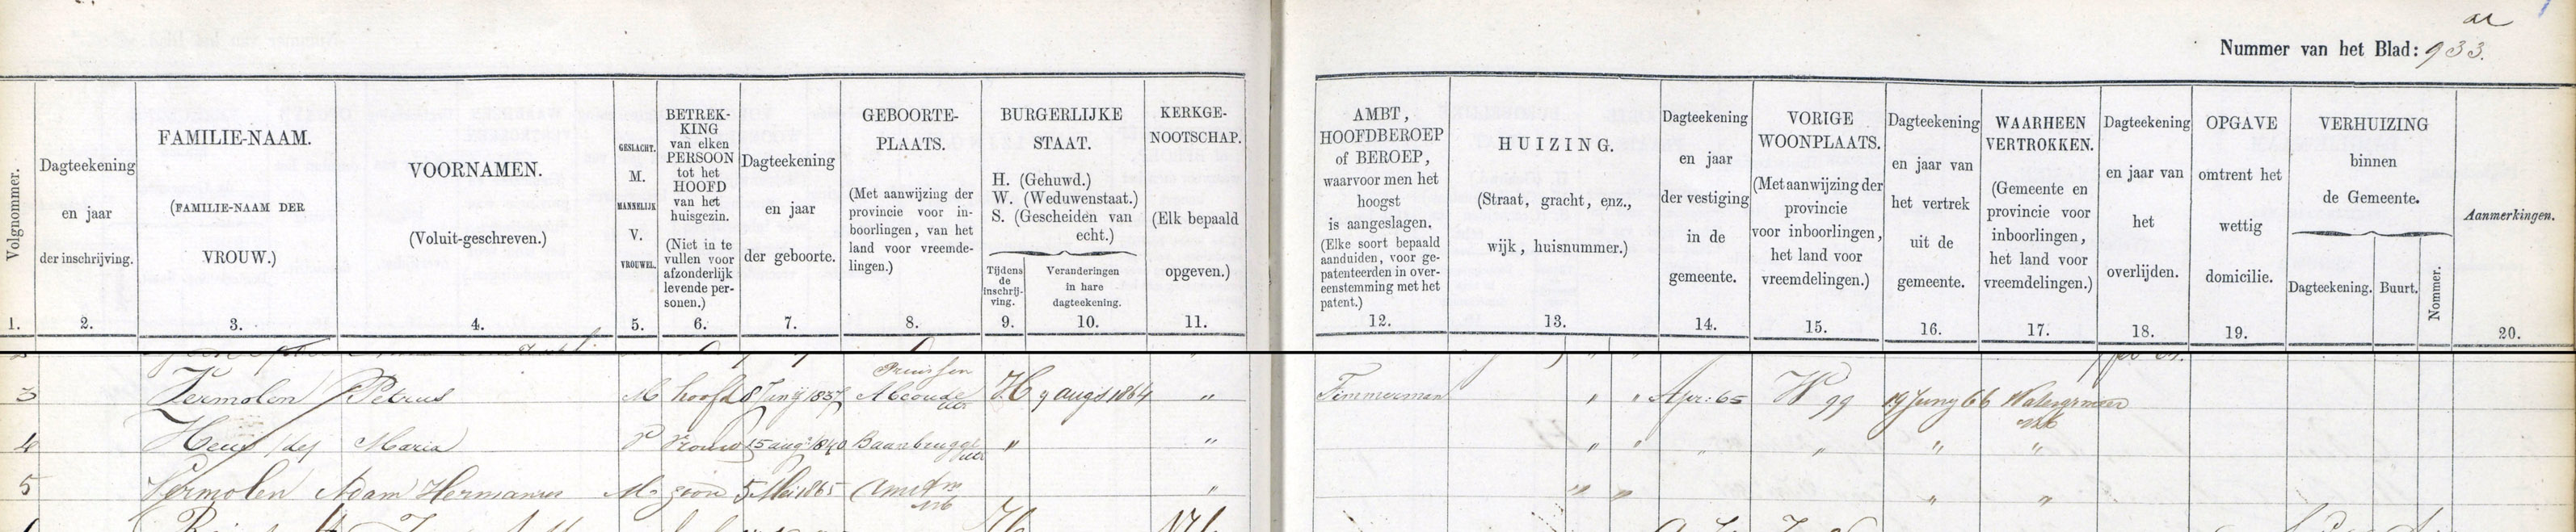 Nummer van het Blad: 933.
Volgnommer.
1.
Dagteekening
en jaar
der inschrijving.
2.
FAMILIE-NAAM.
(FAMILIE-NAAM DER
VROUW.)
3.
VOORNAMEN.
(Voluit-geschreven.)
4.
GESLACHT.
M.
MANNELIJK
V.
VROUWEL.
5.
BETREK-
KING
van elken
PERSOON
tot het
HOOFD
van het
huisgezin.
(Niet in te
vullen voor
afzonderlijk
levende per-
sonen.)
6.
Dagteekening
en jaar
der geboorte.
7.
GEBOORTE-
PLAATS.
(Met aanwijzing der
provincie voor in-
boorlingen, van het
land voor vreemde-
lingen.)
8.
BURGERLIJKE
STAAT.
H. (Gehuwd.)
W. (Weduwenstaat.)
S. (Gescheiden van
echt.)
Tijdens
de
inschrij-
ving.
9.
Veranderingen
in hare
dagteekening.
10.
KERKGE-
NOOTSCHAP.
(Elk bepaald
opgeven.)
11.
AMBT,
HOOFDBEROEP
of BEROEP,
waarvoor men het
hoogst
is aangeslagen.
(Elke soort bepaald
aanduiden, voor ge-
patenteerden in over-
eenstemming met het
patent.)
12.
HUIZING.
(Straat, gracht, enz.,
wijk, huisnummer.)
13.
Dagteekening
en jaar
der vestiging
in de
gemeente.
14.
VORIGE
WOONPLAATS.
(Met aanwijzing der
provincie
voor inboorlingen,
het land voor
vreemdelingen.)
15.
Dagteekening
en jaar van
het vertrek
uit de
gemeente.
16.
WAARHEEN
VERTROKKEN.
(Gemeente en
provincie voor
inboorlingen,
het land voor
vreemdelingen.)
17.
Dagteekening
en jaar van
het
overlijden.
18.
OPGAVE
omtrent het
wettig
domicilie.
19.
VERHUIZING
binnen
de Gemeente.
Dagteekening.
Buurt.
Nommer.
Aanmerkingen.
20.
Pruissen
3 Vermolen Petrus M hoofd 8 Junij 1837 Abcoude Utr H 9 augs 1864 " Timmerman " " Apr: 65 W 99 19 Juny 66
4 Maria V vrouw 15 aug: 1840 Baambrugge Utr " " " " " " " "
5 Vermolen Adam Hermanus M zoon 5 Mei 1865 Amstm NH " " " " "